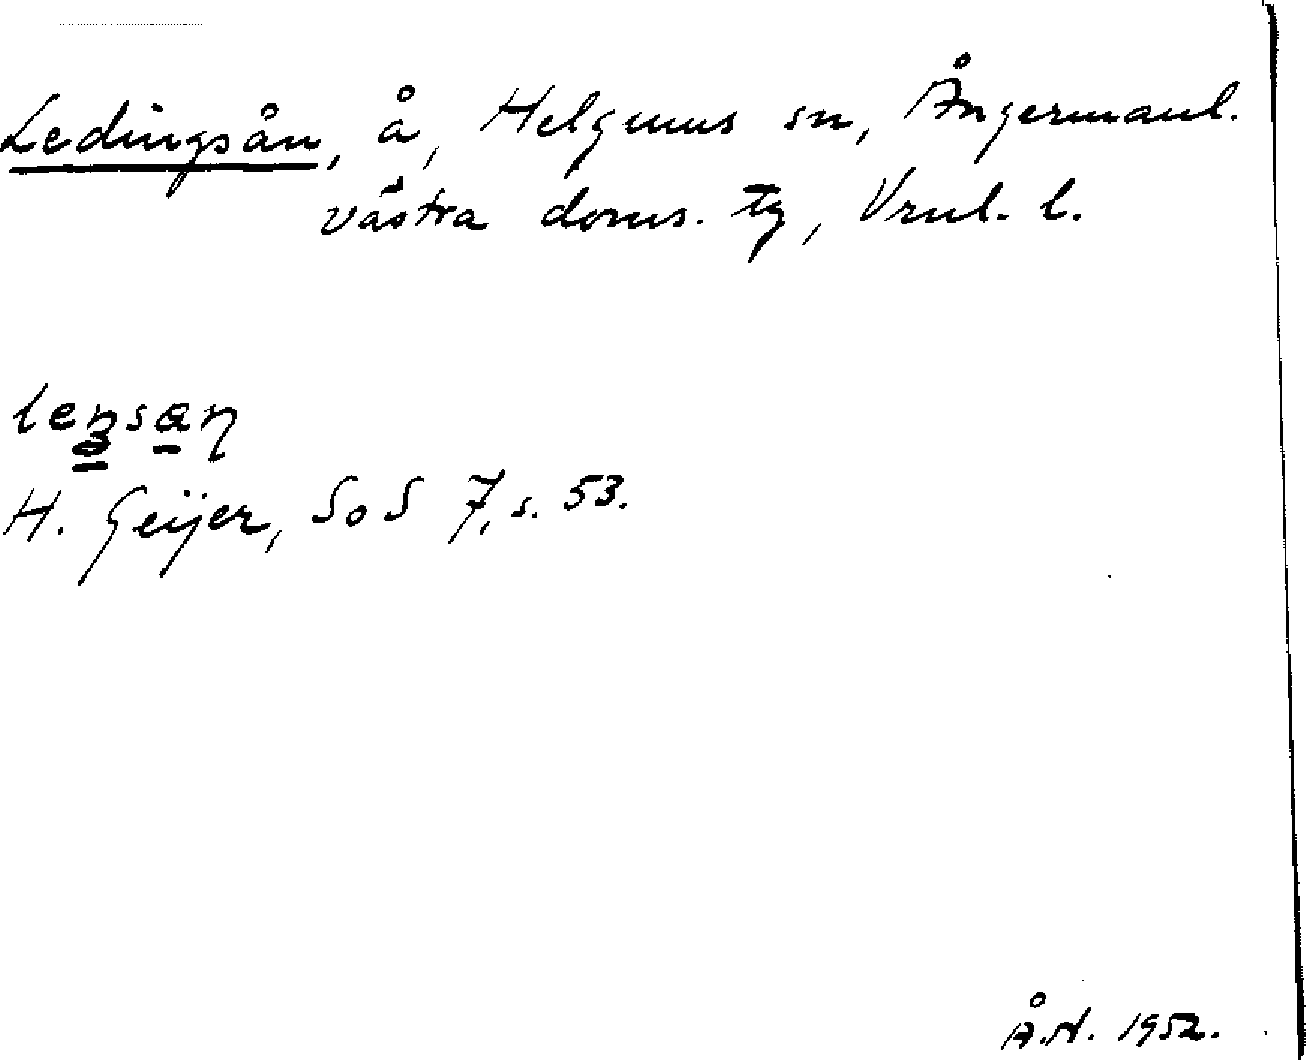 Ledingsån, å, Helgums sn, Ångermanl.
västra doms. tg, Vrnl. l.
H. Geijer, SoS 7, s. 53.
Å.N. 1952.